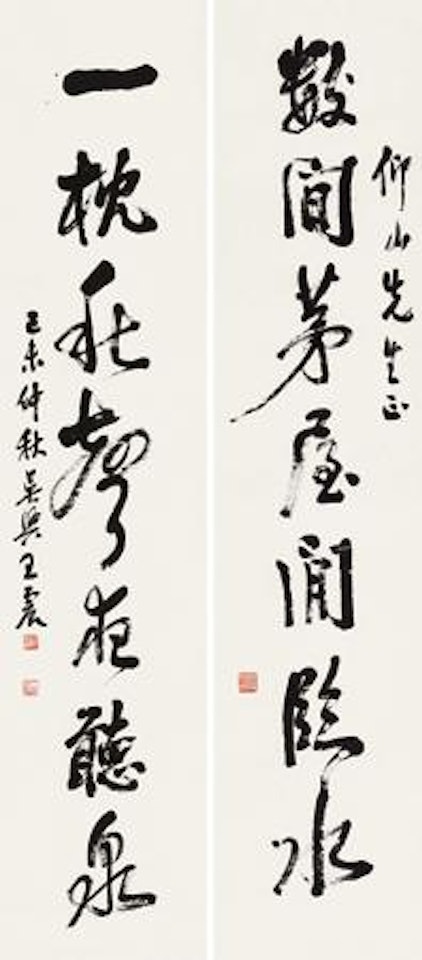 仰山先生正
數間茅屋閒臨水
一枕秋聲夜聽泉
己未仲秋吳興王震